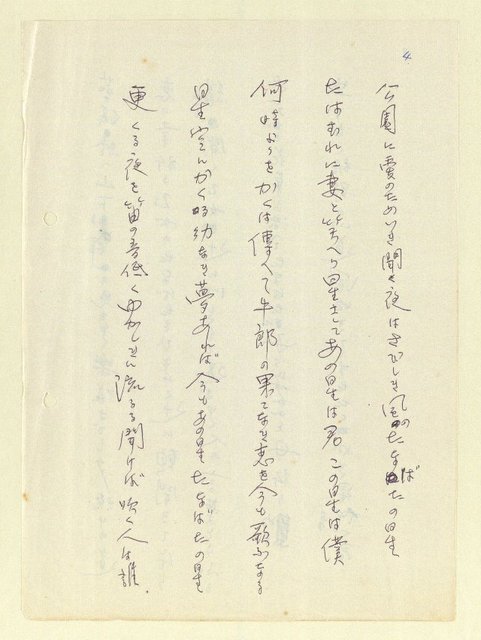 4
公園に愛のためいき聞き夜はさびしき風のたなばたの星
たはむれに妻と笑へり星さしてあの星は君この星は僕
何時よりをかくは傳へて牛郎の果てなき恋を今も歌ふなる
星空んかく幼なき夢あれば今もあの星たなばたの星
更くる夜を笛の音低く流るる聞けば吹く人は誰